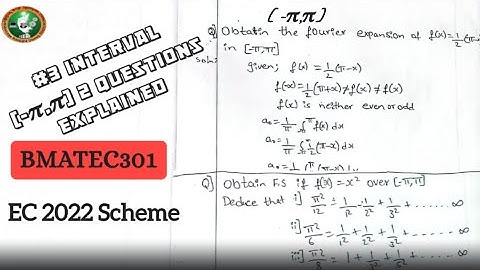 #3 INTERVAL
[-π,π] 2 QUESTIONS
EXPLAINED
BMATEC301
EC 2022 Scheme
[-π,π]
Q] Obtain the fourier expansion of f(x)=1/2(π-x)
in [-π,π]
Soln:
given; f(x) = 1/2(π-x)
f(-x) = 1/2(π+x) ≠ f(x) ≠ f(x)
f(x) is neither even or odd
a₀ = 1/π ∫ f(x) dx
a₀ = 1/π ∫ 1/2(π-x) dx
a₀ = 1
Q] Obtain F.S if f(x) = x² over [-π,π]
Deduce that i] π²/12 = 1/1² - 1/2² + 1/3² + ...... ∞
ii] π²/6 = 1/1² + 1/2² + 1/3² + ...... ∞
iii] π²/8 = 1 + 1/3² + ...... ∞